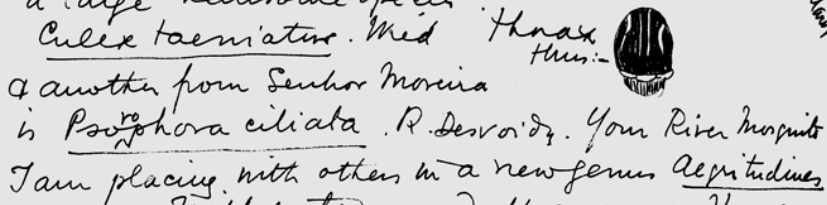 a large
Culex taeniatus. Mied Thorax
thus:-
& another from Senhor Moreira
is Psorophora ciliata. R. Desvoidy. Your River Mosquito
I am placing with others in a new genus Aegritudines